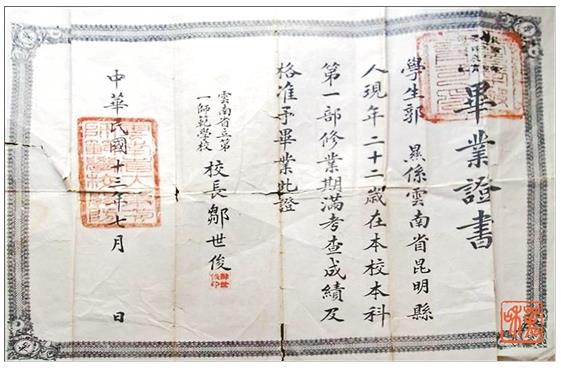 畢業證書
學生郭 曻係雲南省昆明縣
人現年二十二歲在本校本科
第一部修業期滿考查成績及
格准予畢業此證
雲南省立第
一師範學校
校長鄒世俊
中華民國十三年七月 日